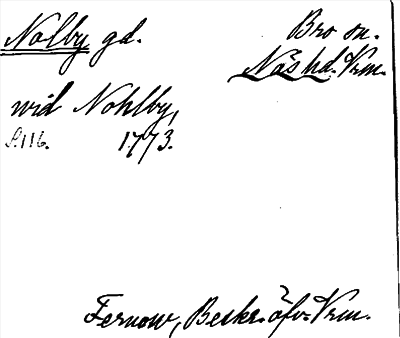 Nolby gd.
Bro sn.
Näs hd. Vrm.
wid Nohlby,
S. 116. 1773.
Fernow, Beskr. öfv. Vrm.